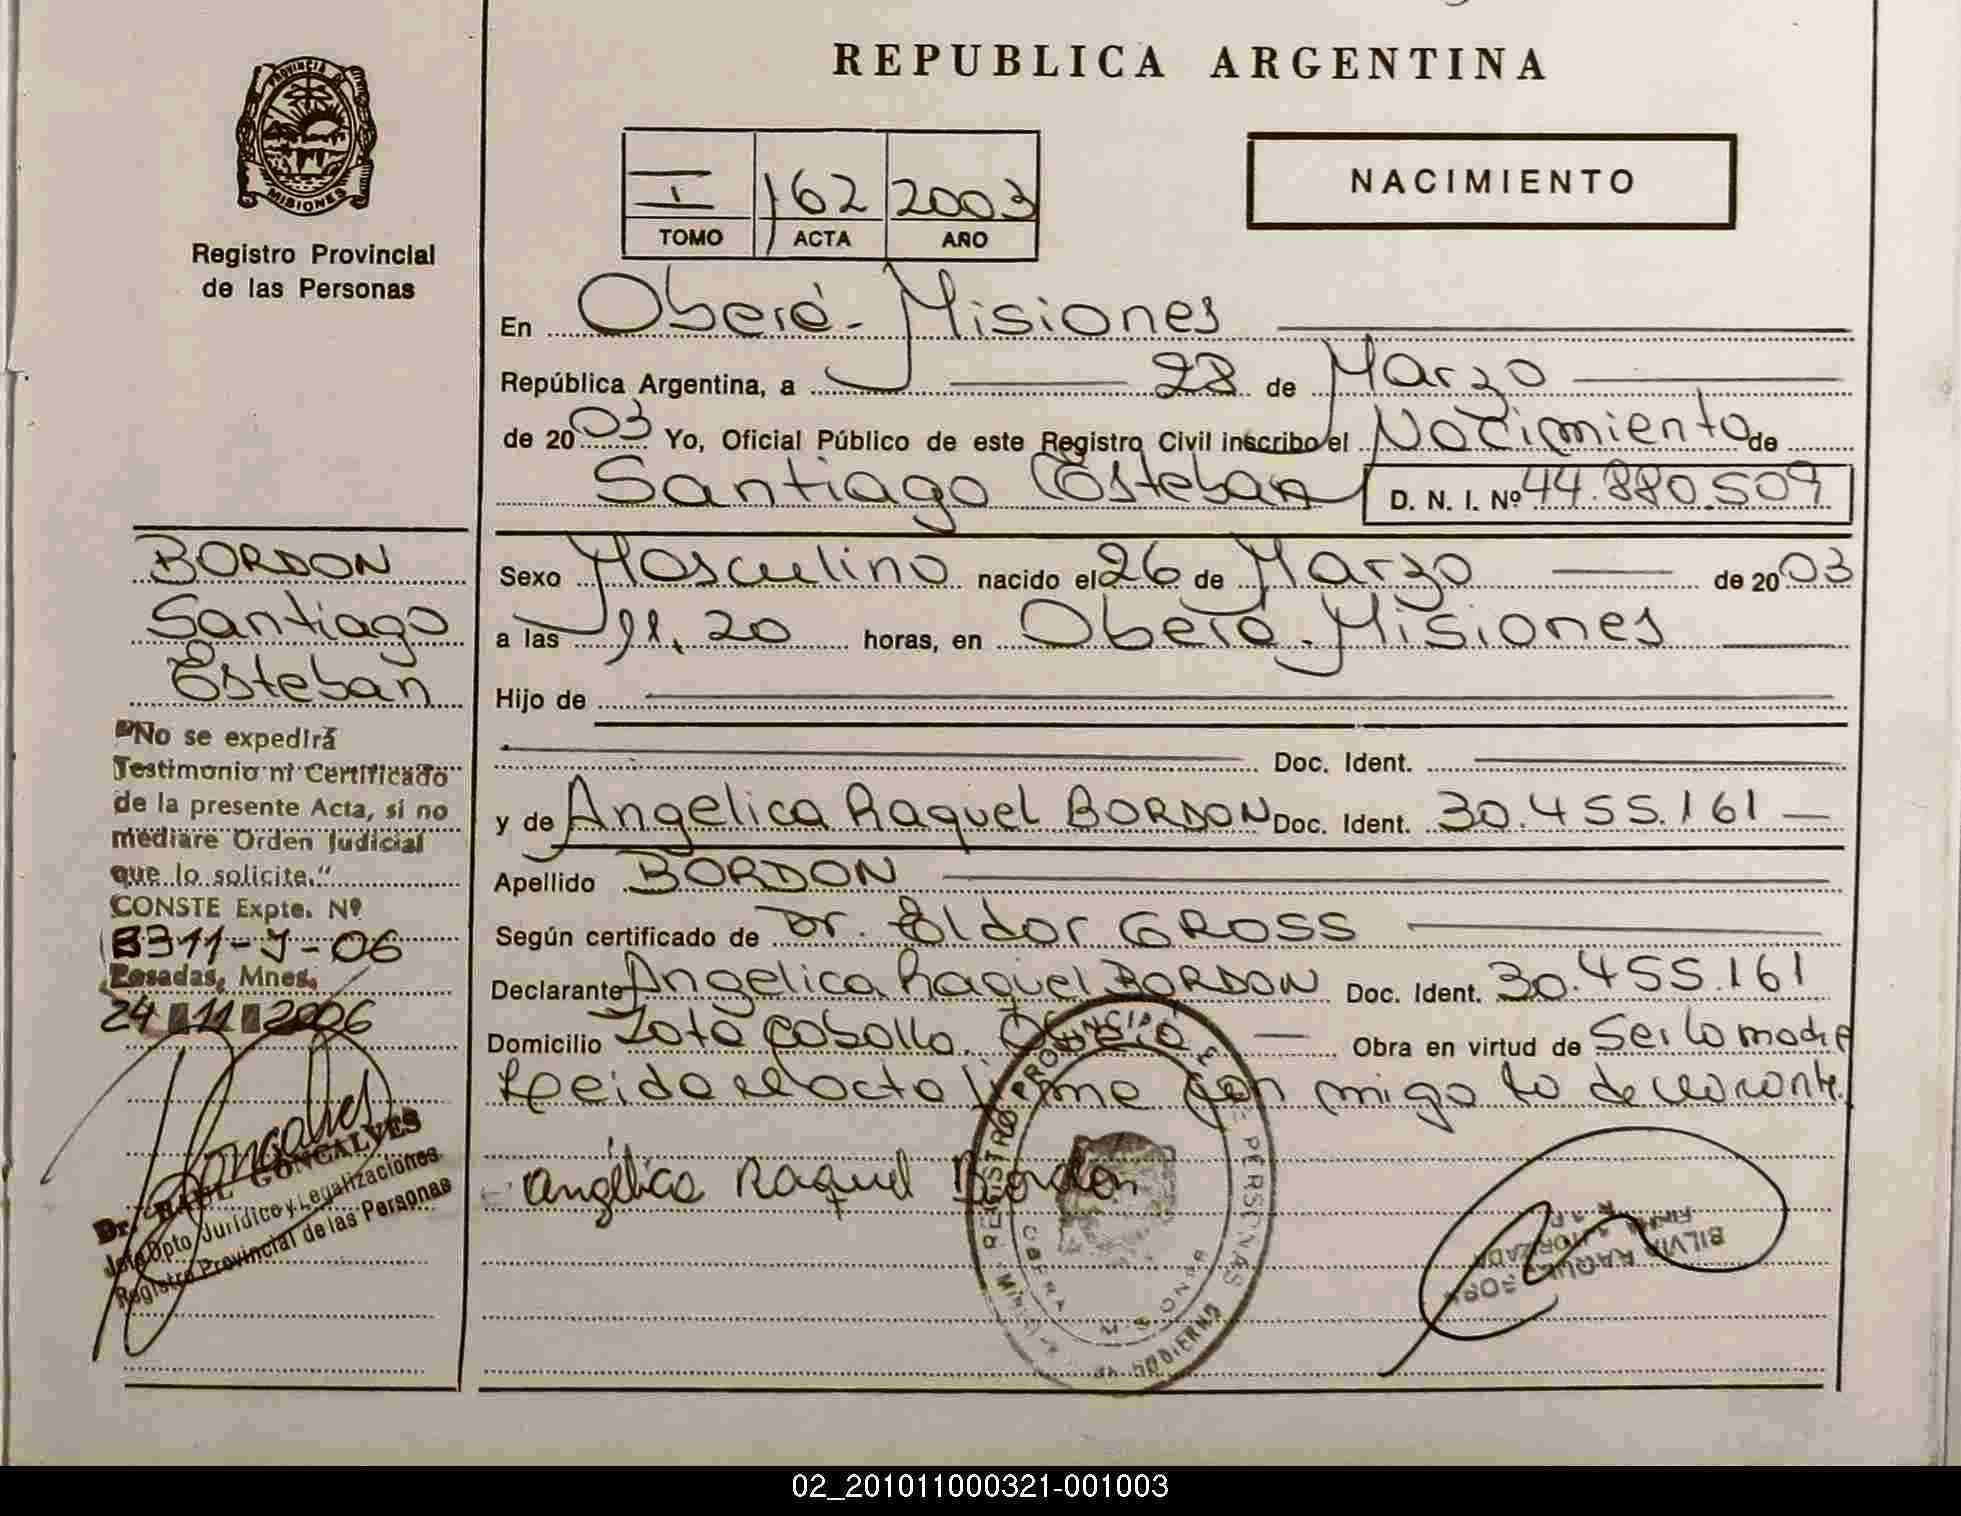 REPUBLICA ARGENTINA
PROVINCIA DE
MISIONES
Registro Provincial
de las Personas
I 162 2003
TOMO ACTA AÑO
NACIMIENTO
En Oberá - Misiones
República Argentina, a 28 de Marzo
de 2003 Yo, Oficial Público de este Registro Civil inscribo el Nacimiento de
Santiago Esteban D. N. I. Nº 44.880.509
Sexo Masculino nacido el 26 de Marzo de 2003
a las 11.20 horas, en Oberá - Misiones
Hijo de
Doc. Ident.
y de Angelica Raquel BORDON Doc. Ident. 30.455.161
Apellido BORDON
Según certificado de Dr. Eldor GROSS
Declarante Angelica Raquel BORDON Doc. Ident. 30.455.161
Domicilio Oberá Obra en virtud de Ser la madre
Leida el acta firma con migo la declarante.
Angélica Raquel Bordon
BORDON
Santiago
Esteban
"No se expedirá
Testimonio ni Certificado
de la presente Acta, si no
mediare Orden Judicial
que lo solicite."
CONSTE Expte. Nº
3311-J-06
Posadas, Mnes.
24 11 2006
Goncalves
Dr. RAUL GONCALVES
Jefe Dpto Jurídico y Legalizaciones
Registro Provincial de las Personas
REGISTRO PROVINCIAL DE PERSONAS
GOBIERNO
RAQUEL
AUTORIZADA
02_201011000321-001003